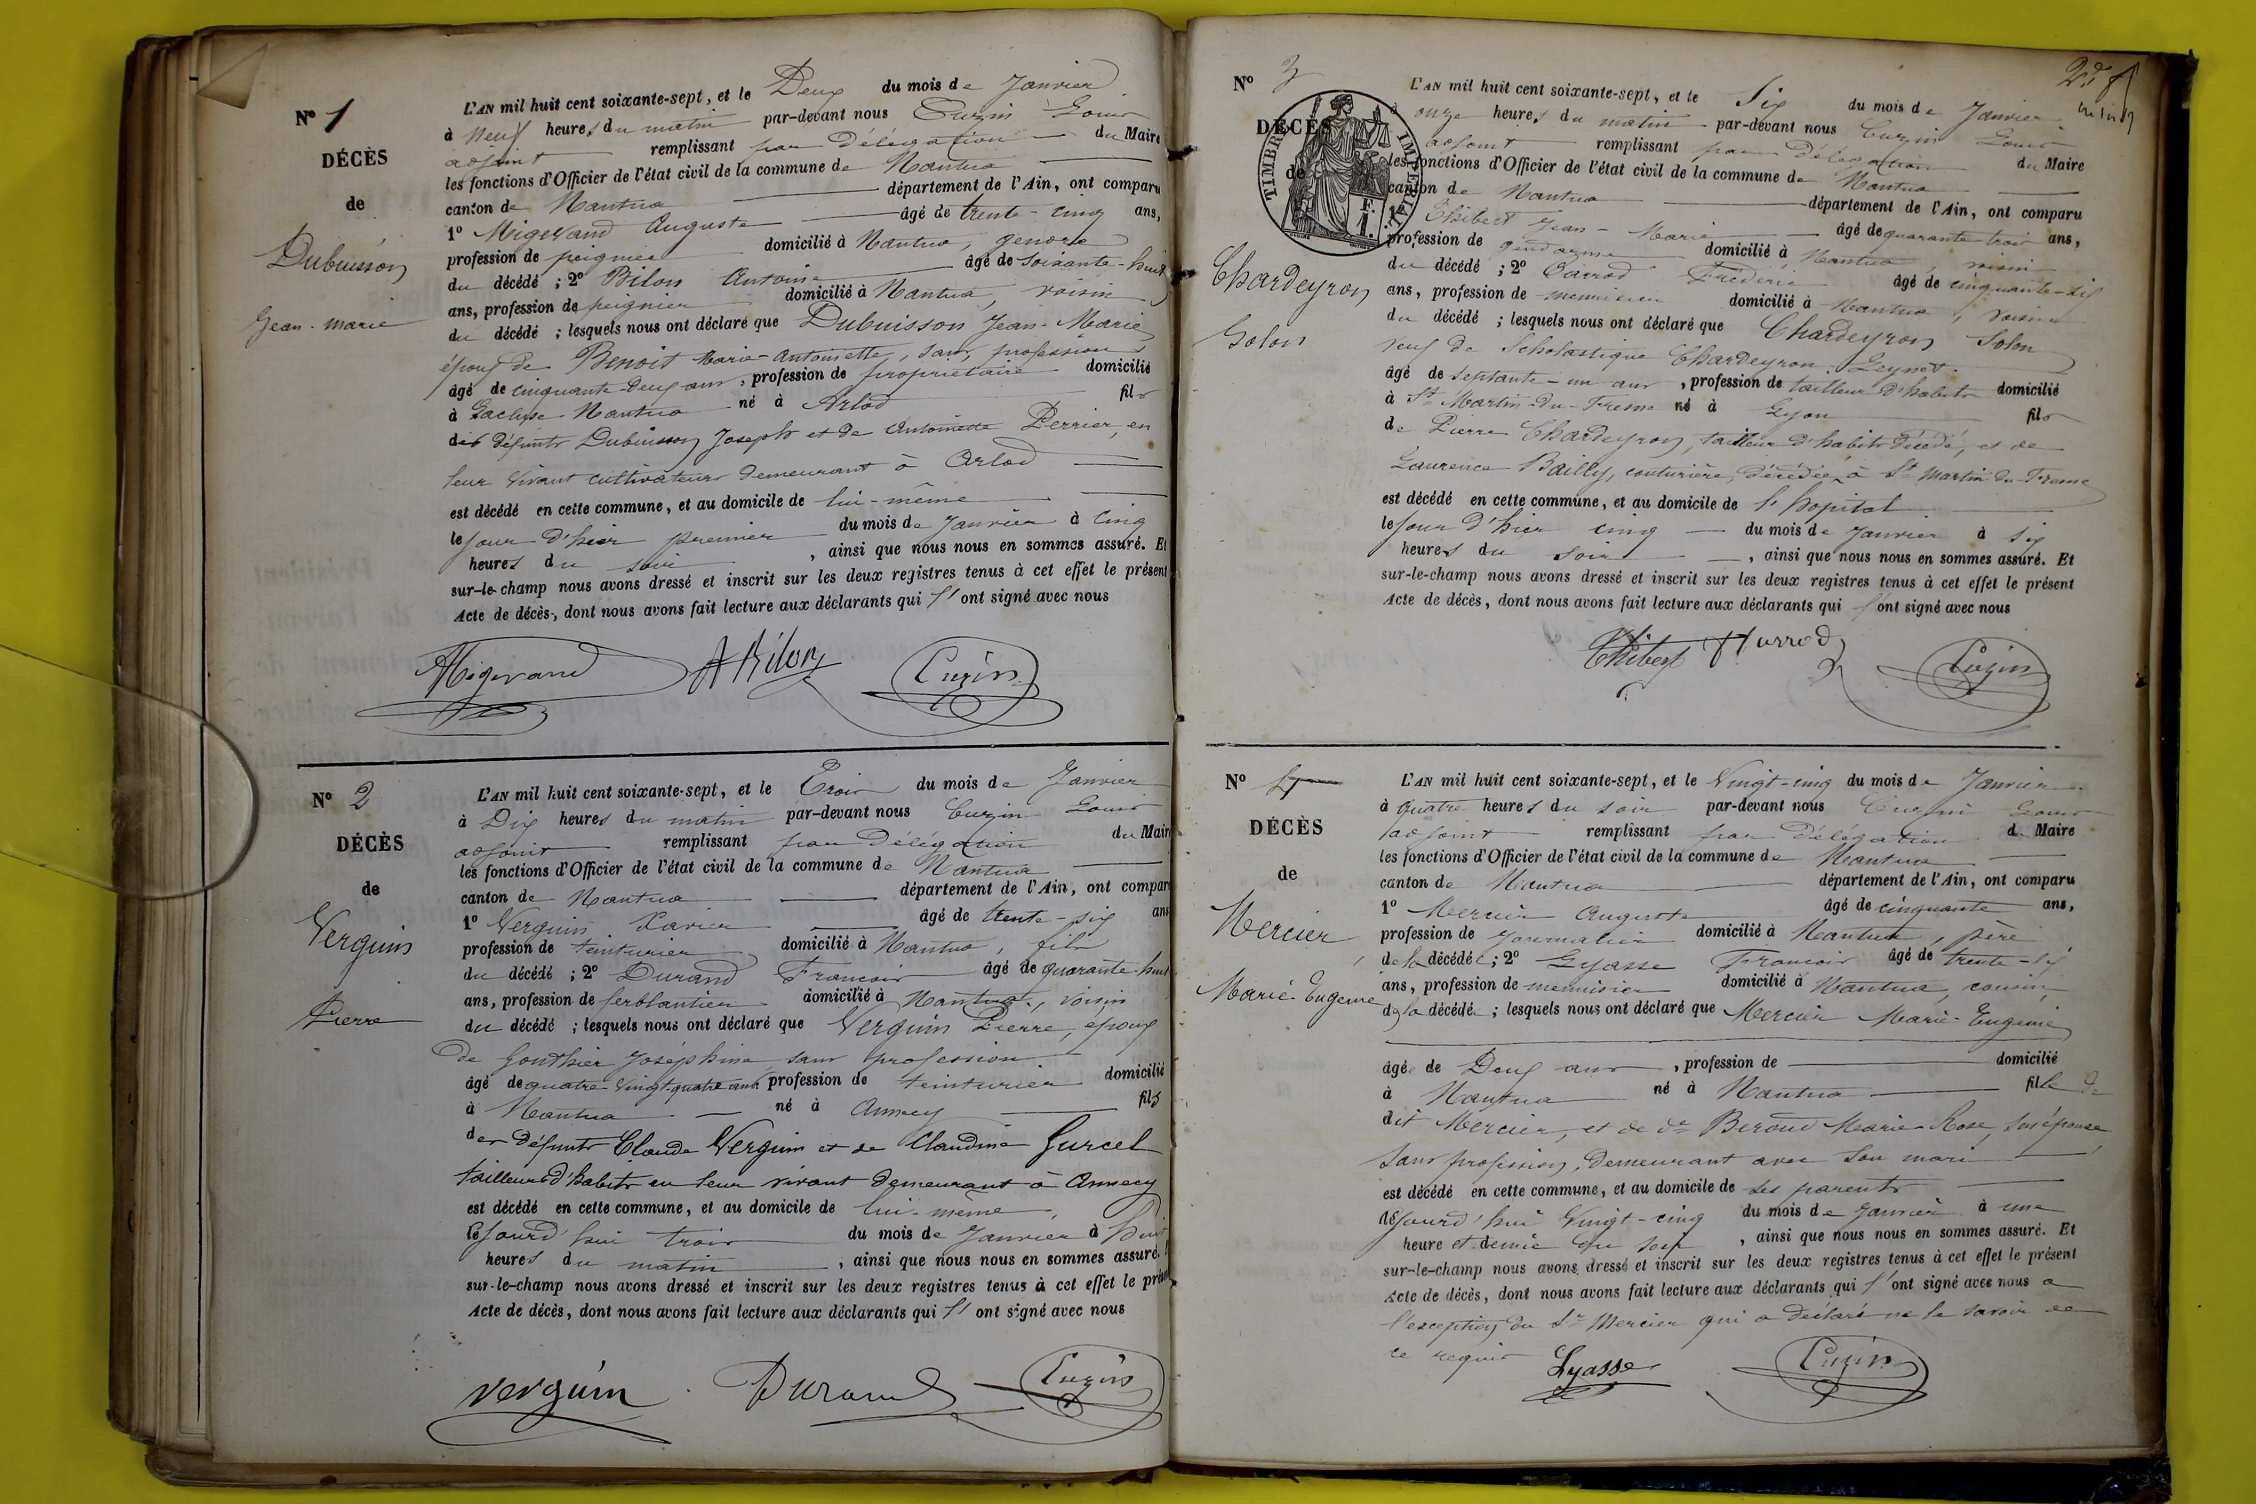 Nº 1
DÉCÈS
de
Dubuisson
Jean-Marie
L'AN mil huit cent soixante-sept, et le Deux du mois de Janvier
à Neuf heures du matin par-devant nous Cuzin Louis
adjoint remplissant par délégation du Maire
les fonctions d'Officier de l'état civil de la commune de Nantua
canton de Nantua département de l'Ain, ont comparu
1º Migerand Auguste âgé de trente-cinq ans,
profession de peignier domicilié à Nantua, gendre
du décédé ; 2º Bilon Antoine âgé de soixante-huit
ans, profession de peignier domicilié à Nantua, voisin
du décédé ; lesquels nous ont déclaré que Dubuisson Jean-Marie
époux de Benoit Marie-Antoinette, sans profession
âgé de cinquante-deux ans, profession de propriétaire domicilié
à Nantua né à Arlod fils
des défunts Dubuisson Joseph et de Antoinette Perrier, en
leur vivant cultivateurs demeurant à Arlod
est décédé en cette commune, et au domicile de lui-même
le jour d'hier premier du mois de Janvier à cinq
heures du soir, ainsi que nous nous en sommes assuré. Et
sur-le-champ nous avons dressé et inscrit sur les deux registres tenus à cet effet le présent
Acte de décès, dont nous avons fait lecture aux déclarants qui l'ont signé avec nous
Migerand ABilon Cuzin
Nº 2
DÉCÈS
de
Verguin
Pierre
L'AN mil huit cent soixante-sept, et le Trois du mois de Janvier
à Dix heures du matin par-devant nous Cuzin Louis
adjoint remplissant par délégation du Maire
les fonctions d'Officier de l'état civil de la commune de Nantua
canton de Nantua département de l'Ain, ont comparu
1º Verguin Xavier âgé de trente-six ans
profession de teinturier domicilié à Nantua, fils
du décédé ; 2º Durand François âgé de quarante-huit
ans, profession de ferblantier domicilié à Nantua, voisin
du décédé ; lesquels nous ont déclaré que Verguin Pierre, époux
de Gonthier Joséphine sans profession
âgé de quatre-vingt-quatre ans profession de teinturier domicilié
à Nantua né à Annecy fils
des défunts Claude Verguin et de Claudine Gurcel
tailleurs d'habits en leur vivant demeurant à Annecy
est décédé en cette commune, et au domicile de lui-même,
le jourd'hui trois du mois de Janvier à huit
heures du matin, ainsi que nous nous en sommes assuré.
sur-le-champ nous avons dressé et inscrit sur les deux registres tenus à cet effet le présent
Acte de décès, dont nous avons fait lecture aux déclarants qui l'ont signé avec nous
Verguin Durand Cuzin
Nº 3
TIMBRE IMPERIAL
1 F.
DÉCÈS
de
Chardeyron
Solon
L'AN mil huit cent soixante-sept, et le Six du mois de Janvier
à onze heures du matin par-devant nous Cuzin Louis
adjoint remplissant par délégation du Maire
les fonctions d'Officier de l'état civil de la commune de Nantua
canton de Nantua département de l'Ain, ont comparu
1º Thibert Jean-Marie âgé de quarante-trois ans,
profession de gendarme domicilié à Nantua, voisin
du décédé ; 2º Carrod Frédéric âgé de cinquante-six
ans, profession de menuisier domicilié à Nantua, voisin
du décédé ; lesquels nous ont déclaré que Chardeyron Solon
veuf de Scholastique Chardeyron-Leynet
âgé de septante-un ans, profession de tailleur d'habits domicilié
à St Martin-du-Fresne né à Lyon fils
de Pierre Chardeyron, tailleur d'habits décédé, et de
Laurence Bailly, couturière, décédée à St Martin-du-Fresne
est décédé en cette commune, et au domicile de l'hopital
le jour d'hier cinq du mois de Janvier à six
heures du soir, ainsi que nous nous en sommes assuré. Et
sur-le-champ nous avons dressé et inscrit sur les deux registres tenus à cet effet le présent
Acte de décès, dont nous avons fait lecture aux déclarants qui l'ont signé avec nous
Thibert Cuzin
Nº 4
DÉCÈS
de
Mercier
Marie-Eugenie
L'AN mil huit cent soixante-sept, et le Vingt-cinq du mois de Janvier
à quatre heures du soir par-devant nous Cuzin Louis
adjoint remplissant par délégation du Maire
les fonctions d'Officier de l'état civil de la commune de Nantua
canton de Nantua département de l'Ain, ont comparu
1º Mercier Auguste âgé de cinquante ans,
profession de journalier domicilié à Nantua, père
de la décédée ; 2º Lyasse François âgé de trente-six
ans, profession de menuisier domicilié à Nantua, cousin
de la décédée ; lesquels nous ont déclaré que Mercier Marie-Eugenie
âgée de Deux ans, profession de domicilié
à Nantua né à Nantua fille de
dit Mercier, et de de Beroud Marie-Rose, son épouse
sans profession, demeurant avec son mari
est décédé en cette commune, et au domicile de ses parents
le jourd'hui Vingt-cinq du mois de Janvier à une
heure et demie du soir, ainsi que nous nous en sommes assuré. Et
sur-le-champ nous avons dressé et inscrit sur les deux registres tenus à cet effet le présent
Acte de décès, dont nous avons fait lecture aux déclarants qui l'ont signé avec nous a
l'exception du Sr Mercier qui a déclaré ne le savoir de
ce requis
Lyasse Cuzin